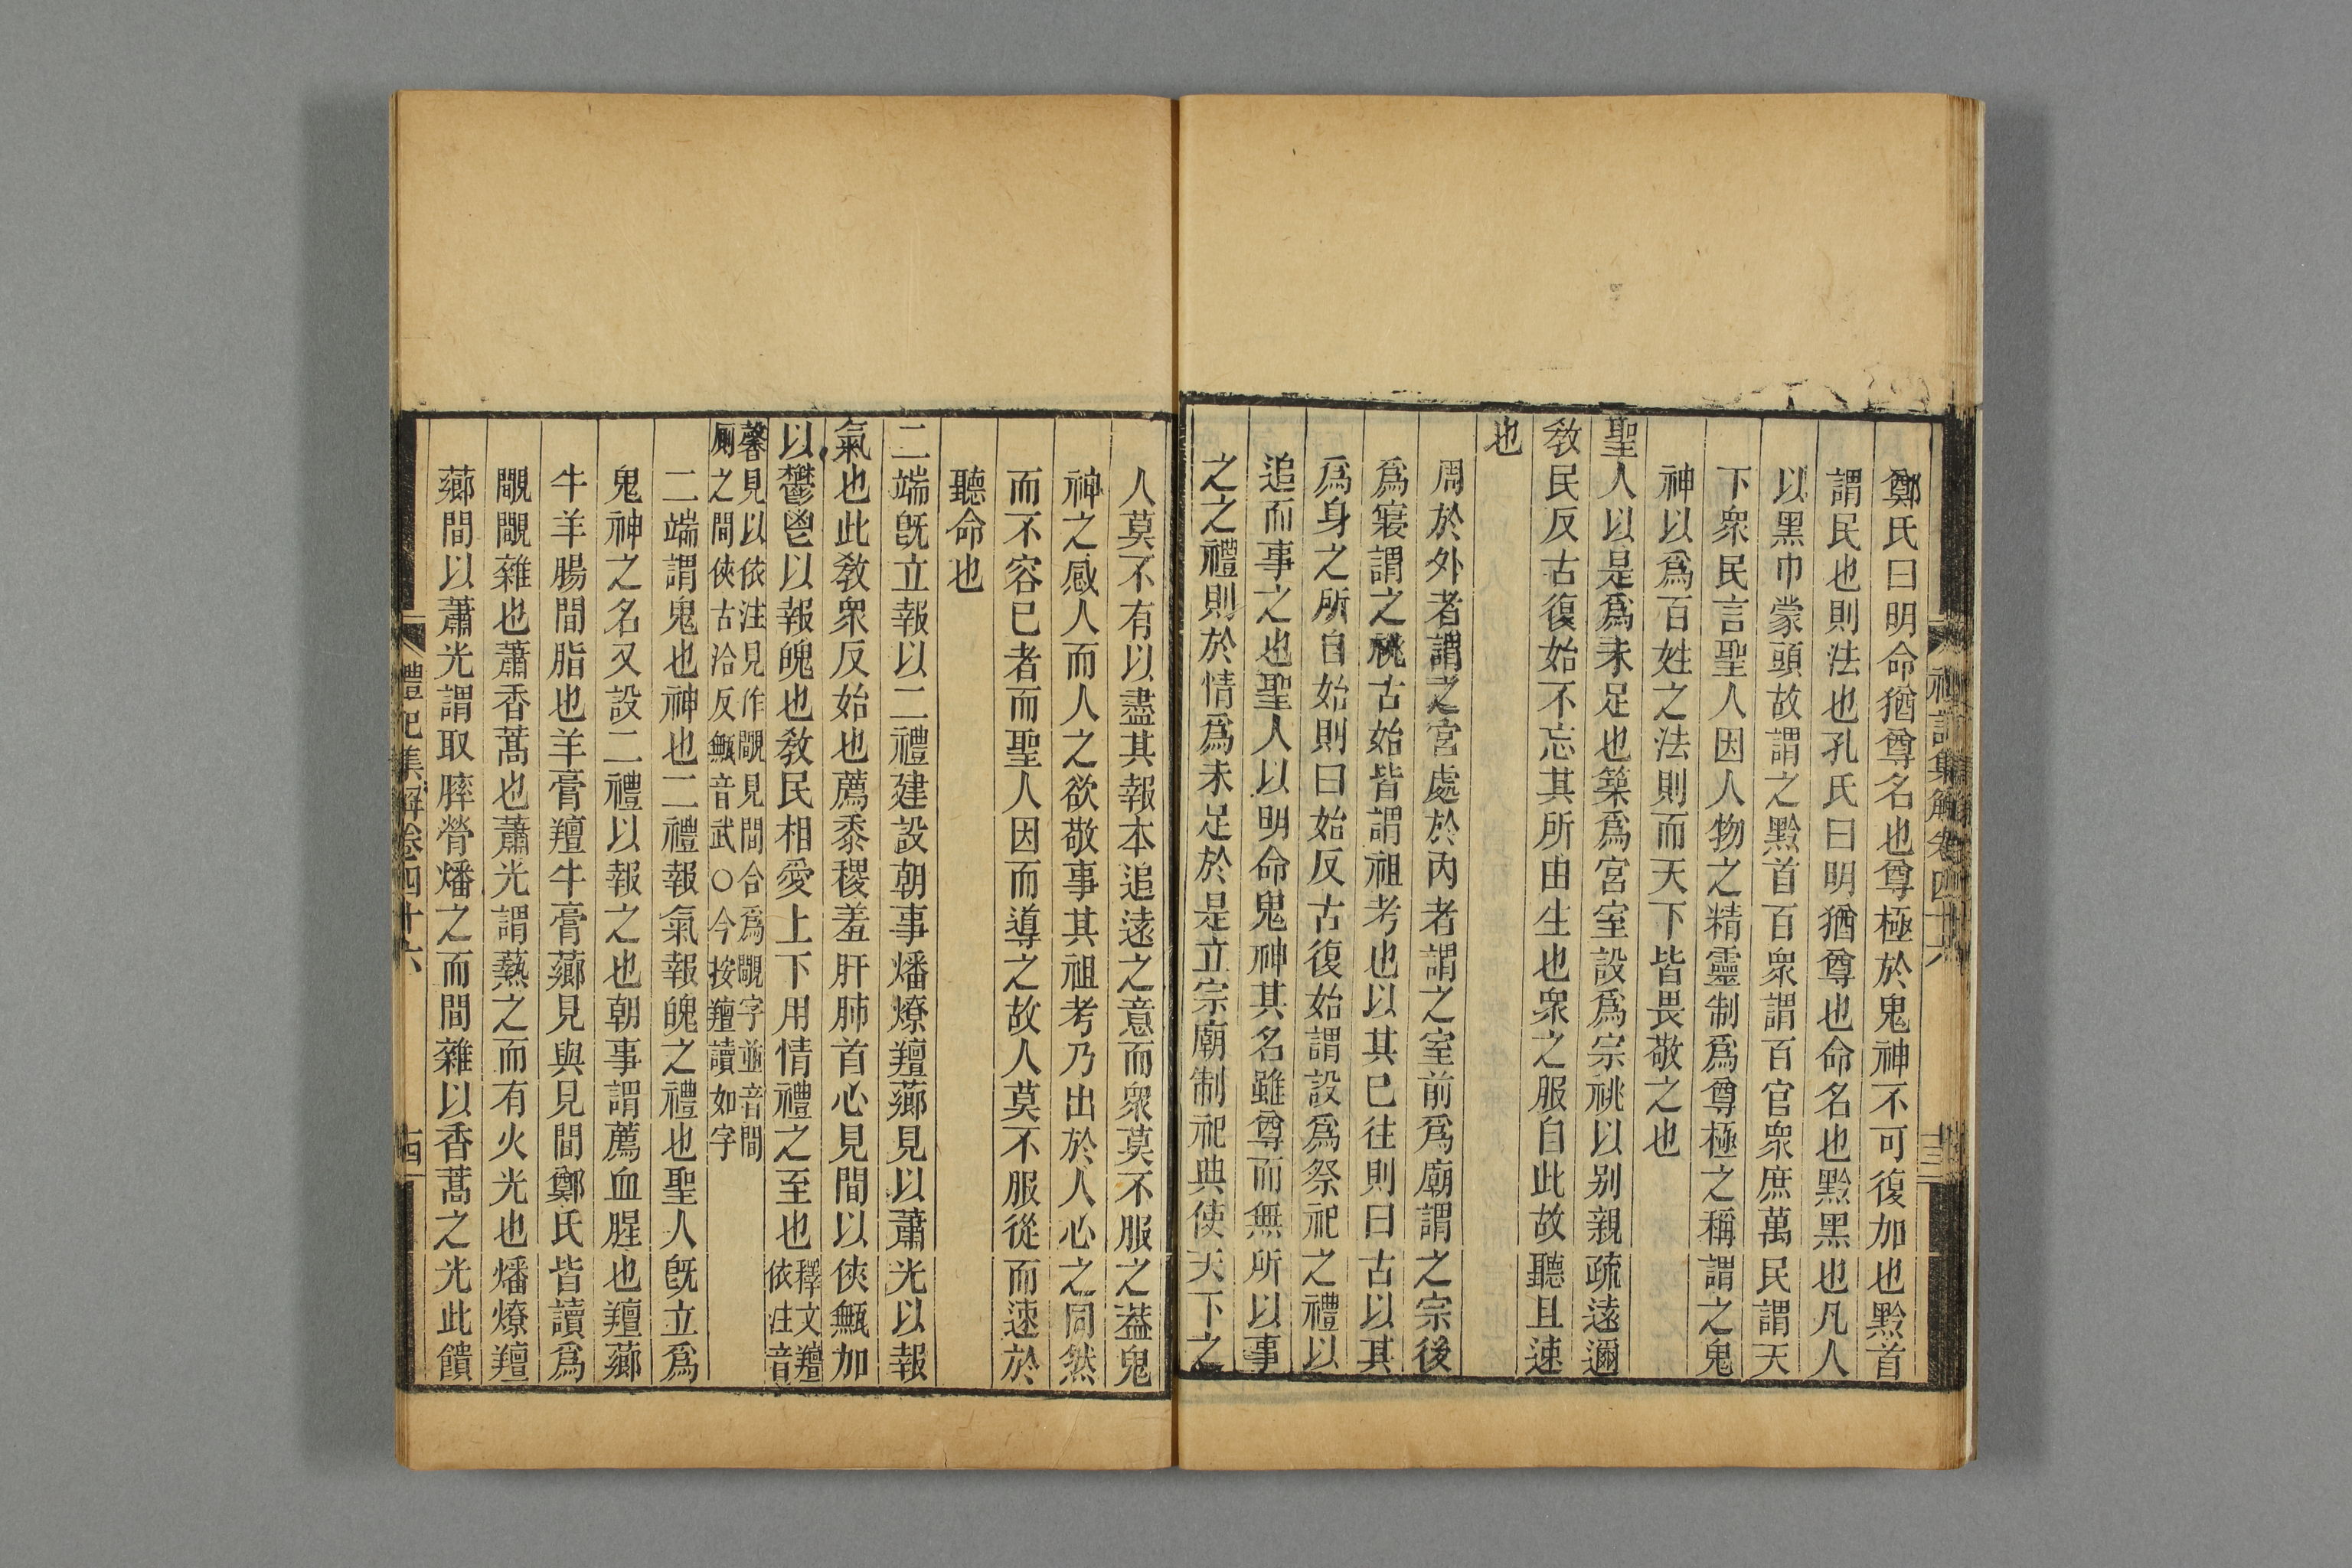 鄭氏曰明命猶尊名也尊極於鬼神不可復加也黔首
謂民也則法也孔氏曰明猶尊也命名也黔黑也凡人
以黑巾蒙頭故謂之黔首百衆謂百官衆庶萬民謂天
下衆民言聖人因人物之精靈制爲尊極之稱謂之鬼
神以爲百姓之法則而天下皆畏敬之也
聖人以是爲未足也築爲宮室設爲宗祧以别親疏遠邇
敎民反古復始不忘其所由生也衆之服自此故聽且速
也
周於外者謂之宮處於內者謂之室前爲廟謂之宗後
爲寢謂之祧古始皆謂祖考也以其已往則曰古以其
爲身之所自始則曰始反古復始謂設爲祭祀之禮以
追而事之也聖人以明命鬼神其名雖尊而無所以事
之之禮則於情爲未足於是立宗廟制祀典使天下之
人莫不有以盡其報本追遠之意而衆莫不服之蓋鬼
神之感人而人之欲敬事其祖考乃出於人心之同然
而不容已者而聖人因而導之故人莫不服從而速於
聽命也
二端旣立報以二禮建設朝事燔燎羶薌見以蕭光以報
氣也此敎衆反始也薦黍稷羞肝肺首心見間以俠甒加
以鬱鬯以報魄也敎民相愛上下用情禮之至也釋文羶
依注音
馨見以依注見作覸見間合爲覸字並音間
厠之間俠古洽反甒音武○今按羶讀如字
二端謂鬼也神也二禮報氣報魄之禮也聖人旣立爲
鬼神之名又設二禮以報之也朝事謂薦血腥也羶薌
牛羊腸間脂也羊膏羶牛膏薌見與見間鄭氏皆讀爲
覸覸雜也蕭香蒿也蕭光謂爇之而有火光也燔燎羶
薌間以蕭光謂取膟膋燔之而間雜以香蒿之光此饋
禮記集解卷四十六
十三
禮記集解卷四十六
十四